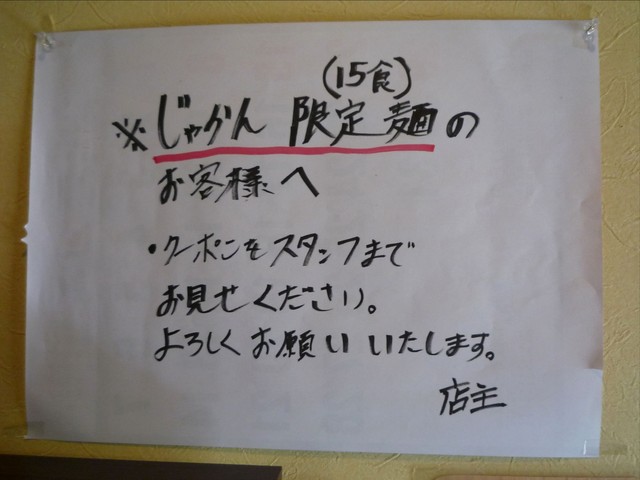 (15食)
※じゃらん 限定麺の
お客様へ
・クーポンをスタッフまで
お見せください。
よろしくお願いいたします。
店主